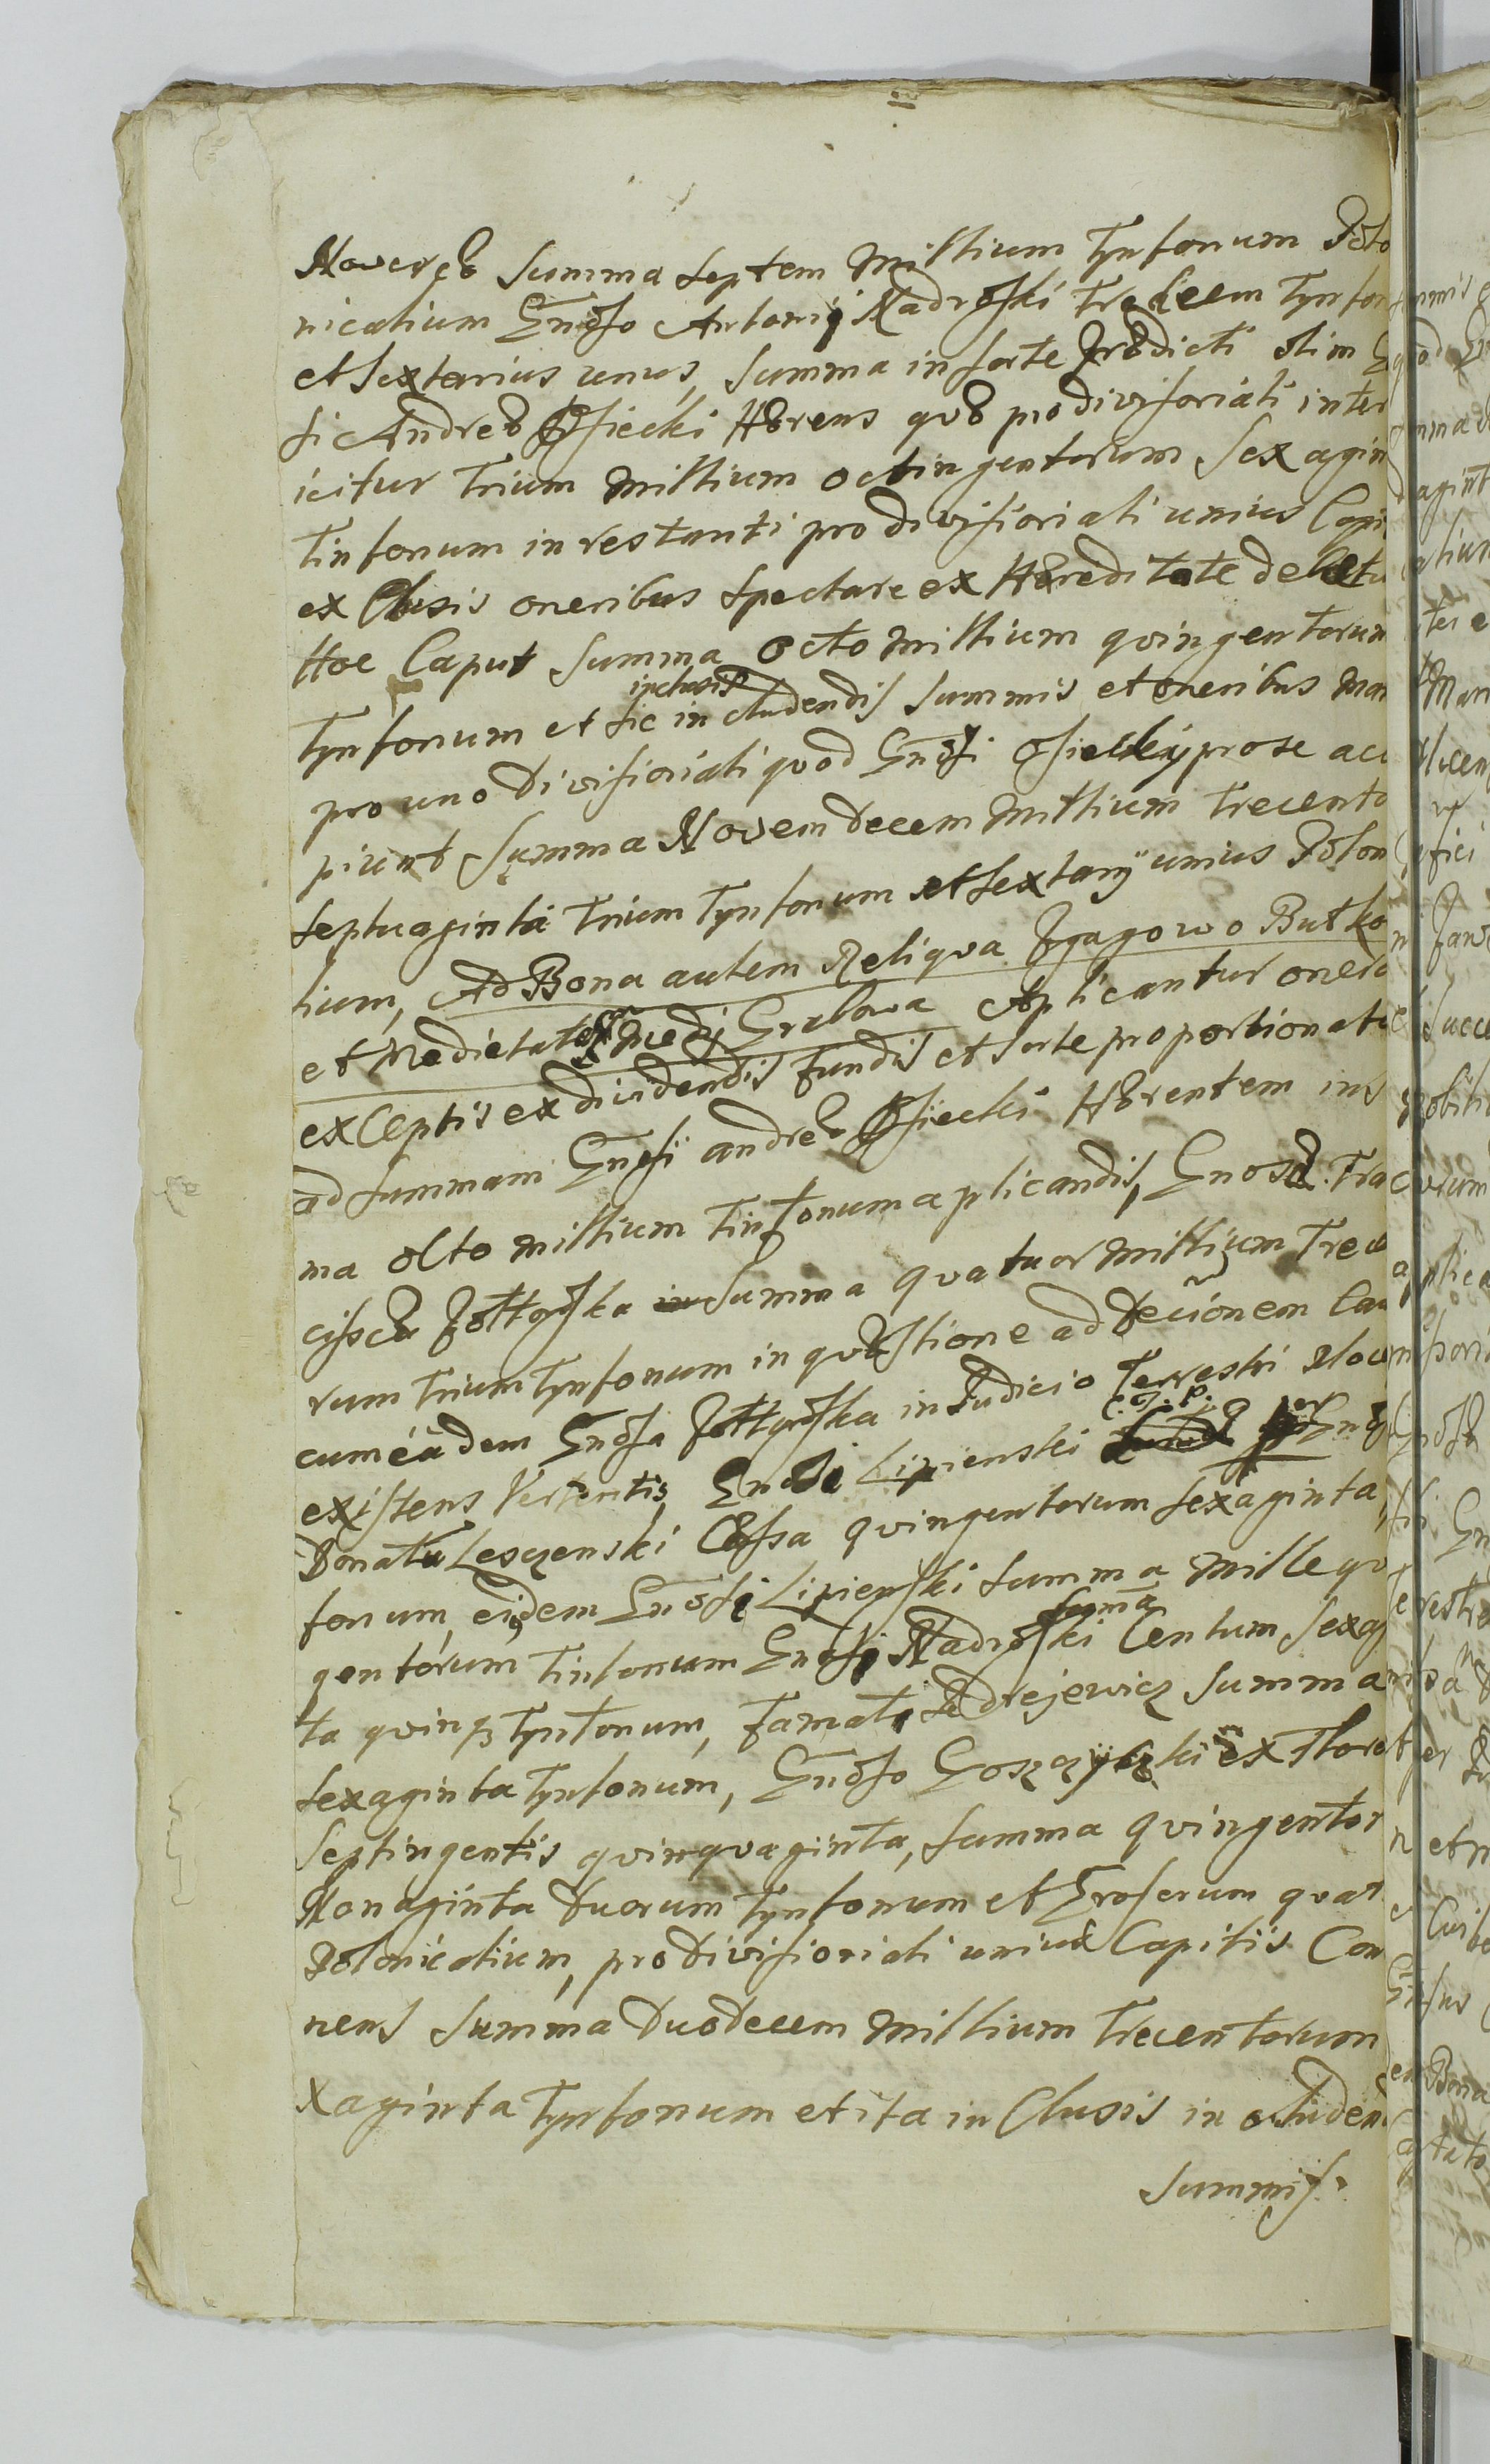 Novercæ Summa Septem Millium Tynfonum Polo
nicalium Gnõso Antonij Nadroski Tredecem Tynfon
et Sextarius unus, Summa in sorte Prædicti olim G
si Andreæ Osiecki Hærens quæ pro divisoriali inter
icitur Trium Millium octingentorum Sexagin
Tinfonum in restanti pro divisioriali unius Capi
ex Clusis oneribus Spectare ex Hæreditate debetu
Hoc Caput Summa Octo Millium quingentorum
inclusis
Tynfonum et sic in cludendis Summis et oneribus man
pro uno divisioriali quod Gnõsi Osieckij pro se acc
piunt Summa Novem decem Millium Trecento
Septuaginta Trium Tynfonum et Sextarij unius Polon
lium, Ad Bona autem Reliqva Zgagowo Butko
et Medietatem Medij Grabowa Aplicantur onera
exceptis ex dividendis fundis et sorte proportionata
ad Summam Gnõsi andreæ Osiecki Hærentem in S
ma octo millium Tinfonum aplicandis, Gnosa Fra
cisca Zołtowska in Summa quatuor Millium Trece
rum Trium Tynfonum in quæstione ad Deciõnem Cau
cum eadem Gnõsa Zołtowska in Iudicio Terrestri Moce
existens Vertentis, Gnosi Lipienski
Donatu Leszczenski Cessa quingentorum Sexaginta
fonum, eidem Gnõsi Lipienski Summa Mille qu
Sumã
gentorum Tinfonum Gnosi Nadroski Centum Sexag
ta quinq Tynfonum, Famati Jędrejewicz Summa
Sexaginta Tynfonum, Gnõso ex Flore
Septingentis quinquaginta, Summa quingentor
Nonaginta Duorum Tynfonum et Grosorum quat
Polonicalium, pro Divisioriali unius Capitis Con
nens Summa Duodecem Millium Trecentorum
xaginta Tynfonum et ita in Clusis in cluden
Summis